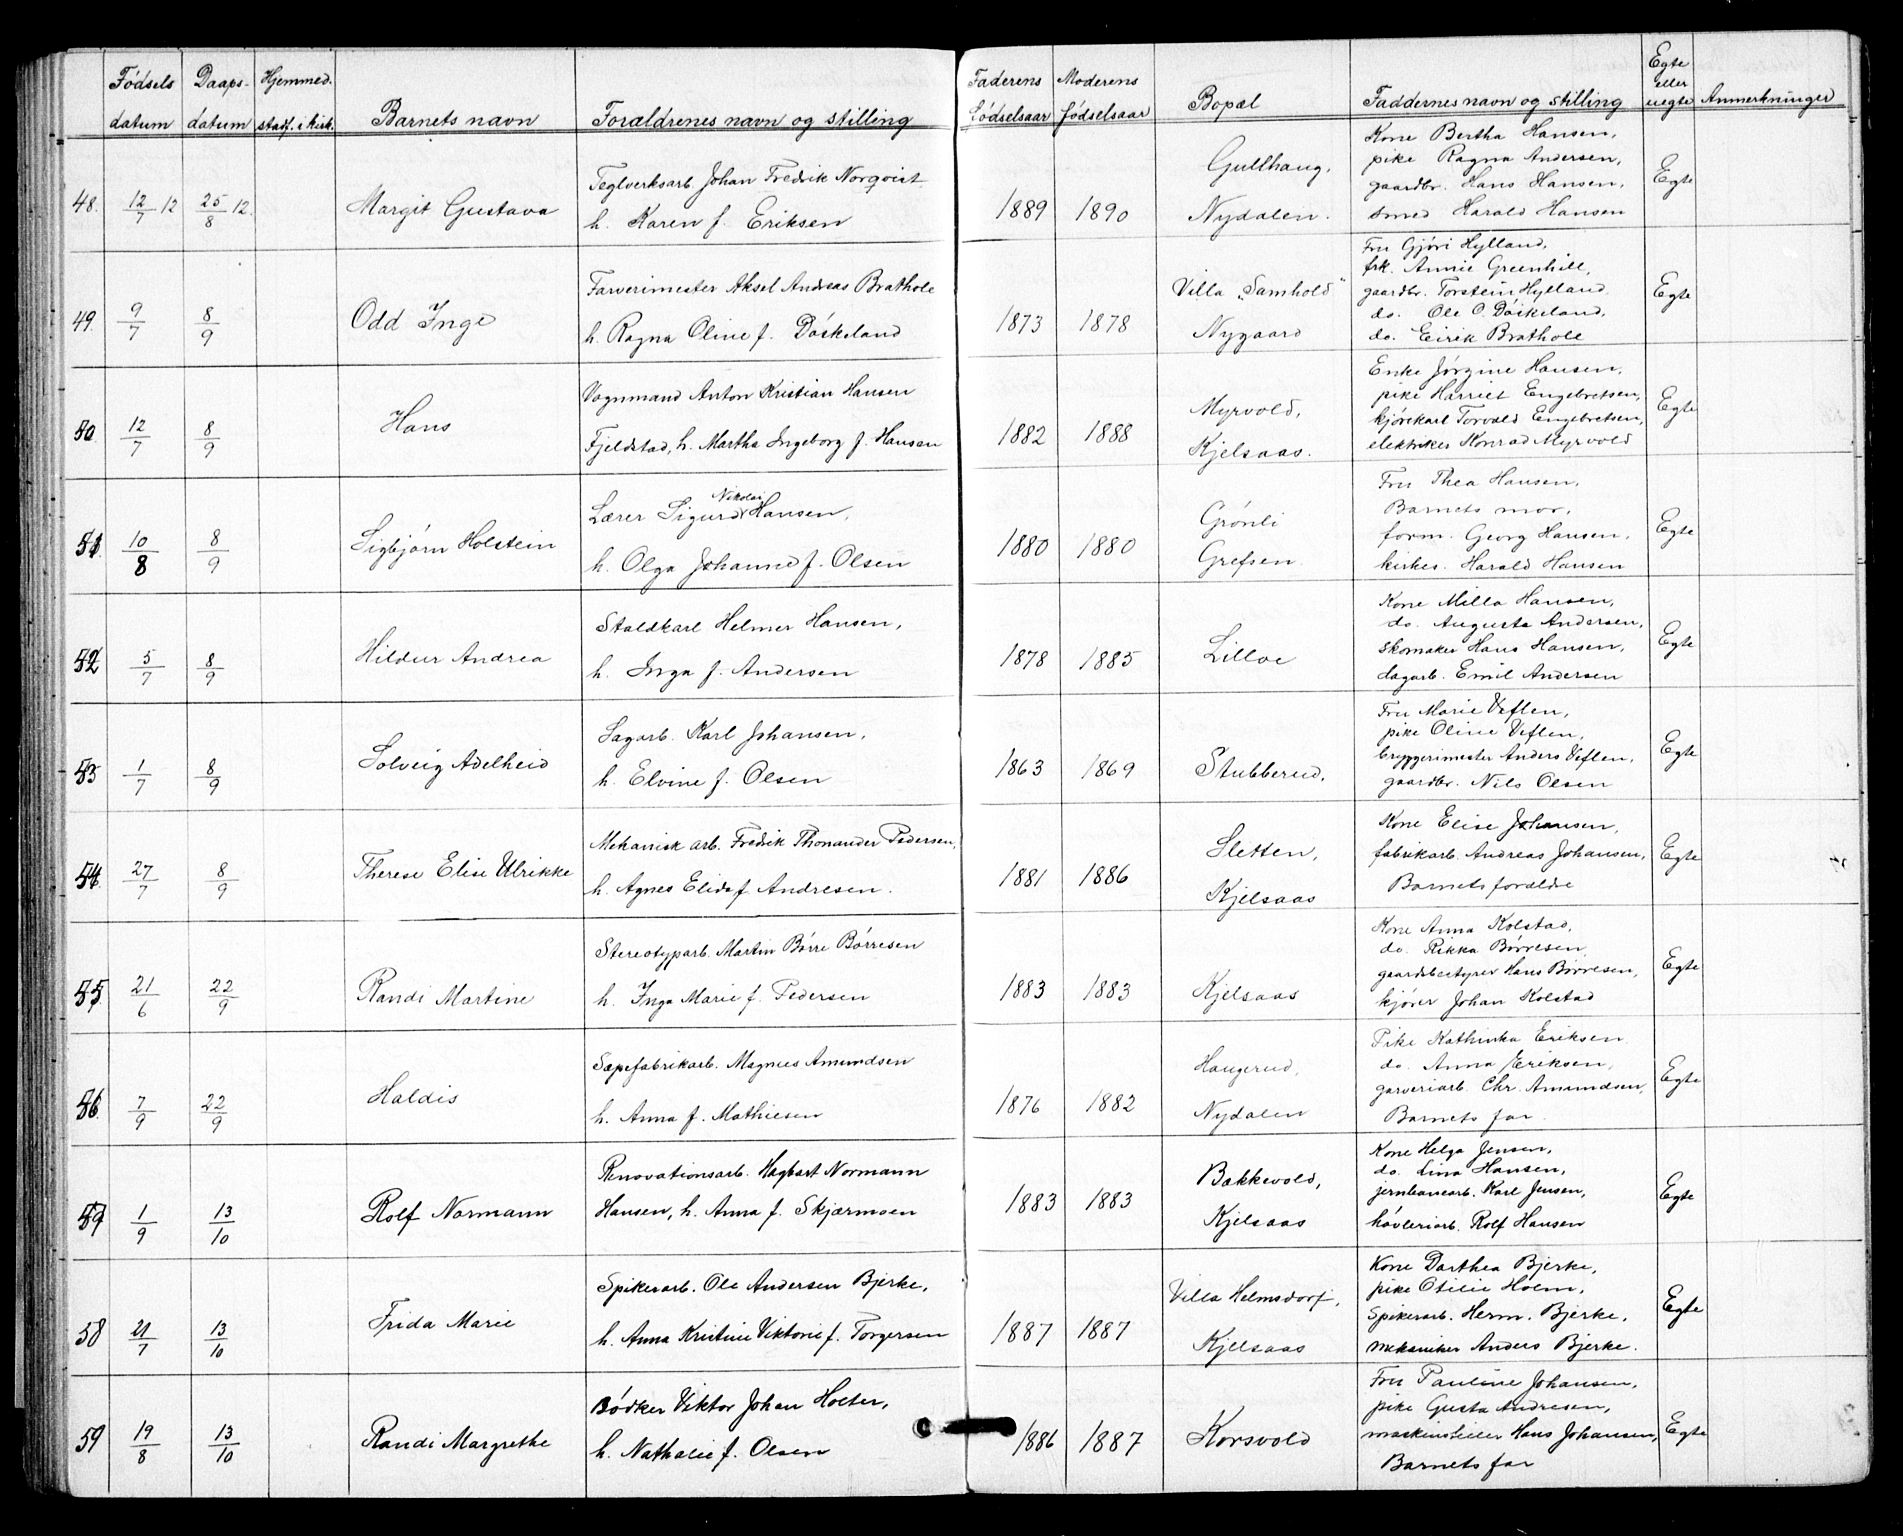 Fødsels datum | Daaps-datum | Hjemmed. stadf. i kirk. | Barnets navn | Forældrenes navn og stilling | Faderens fødselsaar | Moderens fødselsaar | Bopæl | Faddernes navn og stilling | Egte eller uegte | Anmerkninger
48. 12/7 12 25/8 12. Margit Gustava
Teglverksarb. Johan Fredrik Norqvist
h. Karen f. Eriksen
1889 1890
Gullhaug,
Nydalen.
Kone Bertha Hansen,
pike Ragna Andersen,
gaardbr. Hans Hansen,
smed Harald Hansen
Egte
49. 9/7 8/9 Odd Inge
Farverimester Aksel Andreas Brathole
h. Ragna Oline f. Døskeland
1873 1878
Villa „Samhold"
Nygaard
Fru Gjøri Hylland,
frk. Annie Greenhill,
gaardbr. Torstein Hylland
do. Ole O. Døskeland,
do. Eirik Brathole
Egte
50 12/7 8/9 Hans
Vognmand Anton Kristian Hansen
Fjeldstad, h. Martha Ingeborg f. Hansen
1882 1888
Myrvold,
Kjelsaas.
Enke Jørgine Hansen,
pike Harriet Engebretsen,
kjørekarl Torvald Engebretsen,
elektriker Konrad Myrvold
Egte
51. 10/8 8/9 Sigbjørn Holstein
Nikolai
Lærer Sigurd Hansen,
h. Olga Johanne f. Olsen
1880 1880
Grønli
Grefsen.
Fru Thea Hansen,
Barnets mor,
form. Georg Hansen,
kirkes. Harald Hansen
Egte
52 5/7 8/9 Hildur Andrea
Staldkarl Helmer Hansen,
h. Inga f. Andersen
1878 1885
Lilloe
Kone Milla Hansen,
do. Augusta Andersen,
skomaker Hans Hansen,
dagarb. Emil Andersen
Egte
53 1/7 8/9 Solveig Adelheid
Sagarb. Karl Johansen,
h. Elvine f. Olsen
1863 1869
Stubberud.
Fru Marie Veflen,
pike Oline Veflen,
bryggerimester Anders Veflen,
gaardbr. Nils Olsen
Egte
54. 27/7 8/9 Therese Elise Ulrikke
Mekanisk arb. Fredrik Thonander Pedersen,
h. Agnes Elida f. Andresen.
1881 1886
Sletten,
Kjelsaas
Kone Elise Johansen,
fabrikarb. Andreas Johansen,
Barnets forældre
Egte
55 21/6 22/9 Randi Martine
Stereotyparb. Martin Børre Børresen
h. Inga Marie f. Pedersen
1883 1883
Kjelsaas
Kone Anna Kolstad,
do. Rikka Børresen,
gaardsbestyrer Hans Børresen,
kjører Johan Kolstad
Egte
56 7/9 22/9 Haldis
Sæpefabrikarb. Magnus Amundsen
h. Anna f. Mathiesen
1876 1882
Haugerud,
Nydalen
Pike Kathinka Eriksen
do. Anna Eriksen,
garveriarb. Chr. Amundsen,
Barnets far.
Egte
57 1/9 13/10 Rolf Normann
Renovationsarb. Hagbart Normann
Hansen, h. Anna f. Skjærmoen
1883 1883
Bækkevold,
Kjelsaas
Kone Helga Jensen,
do. Lina Hansen,
jernbanearb. Karl Jensen,
høvleriarb. Rolf Hansen
Egte
58 21/7 13/10 Frida Marie
Spikerarb. Ole Andersen Bjerke,
h. Anna Kristine Viktorie f. Torgersen
1887 1887
Villa Helmsdorf,
Kjelsaas
Kone Dorthea Bjerke,
pike Otilie Holm,
Spikerarb. Herm. Bjerke,
mekaniker Anders Bjerke.
Egte
59 19/8 13/10 Randi Margrethe
Bødker Viktor Johan Holter,
h. Nathalie f. Olsen
1886 1887
Korsvold
Fru Pauline Johansen,
pike Gusta Andresen,
maskinsteiler Hans Johansen,
Barnets far
Egte